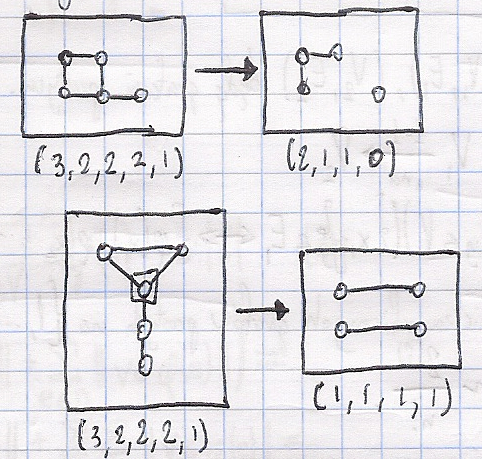 (3,2,2,2,1)
(2,1,1,0)
(3,2,2,2,1)
(1,1,1,1)